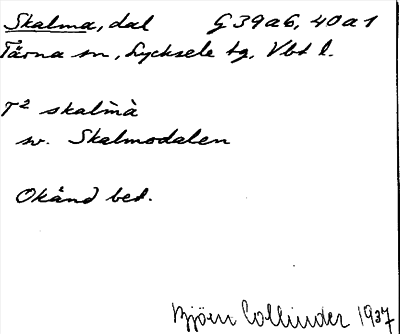 Skalma, dal G 39 a 6, 40 a 1
Tärna sn, Lycksele tg, Vbt l.
T² skalmà
sv. Skalmodalen
Okänd bet.
Björn Collinder 1937